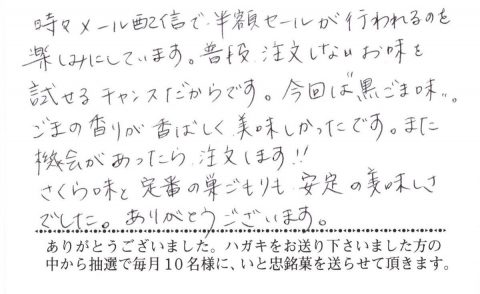 時々メール配信で、半額セールが行われるのを
楽しみにしています。普段、注文しないお味を
試せるチャンスだからです。今回は"黒ごま味"。
ごまの香りが香ばしく、美味しかったです。また
機会があったら、注文します!!
さくら味と定番の巣ごもりも、安定の美味しさ
でした。ありがとうございます。
ありがとうございました。ハガキをお送り下さいました方の
中から抽選で毎月10名様に、いと忠銘菓を送らせて頂きます。